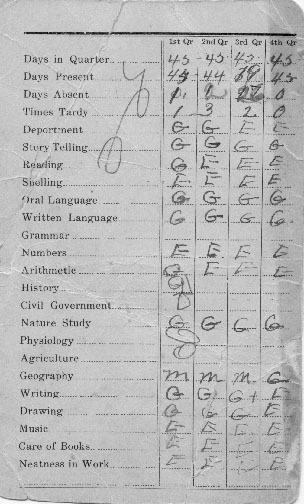 1st Qr 2nd Qr 3rd Qr 4th Qr
Days in Quarter 45 45 45 45
Days Present 45 44 45
Days Absent 0
Times Tardy 1 3 2 0
Deportment G G E E
Story Telling G G G G
Reading G E E E
Spelling E E E E
Oral Language G G G G
Written Language G G G G
Grammar
Numbers E E E E
Arithmetic G E E E
History
Civil Government
Nature Study G G G G
Physiology
Agriculture
Geography M M M G
Writing G G G+ E
Drawing G G G E
Music E E E E
Care of Books E E E E
Neatness in Work E E E E